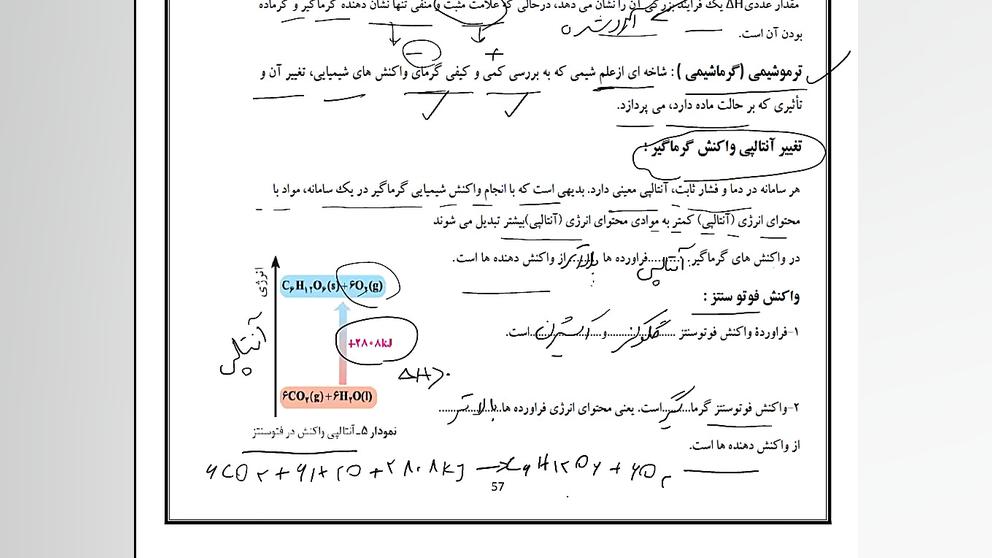 مقدار عددی ΔH یک فرایند بزرگی آن را نشان می دهد، درحالی که علامت مثبت و منفی تنها نشان دهنده گرماگیر و گرماده
بودن آن است.
− +
ترموشیمی (گرماشیمی) : شاخه ای ازعلم شیمی که به بررسی کمی و کیفی گرمای واکنش های شیمیایی، تغییر آن و
تأثیری که بر حالت ماده دارد، می پردازد.
تغییر آنتالپی واکنش گرماگیر :
هر سامانه در دما و فشار ثابت، آنتالپی معینی دارد. بدیهی است که با انجام واکنش شیمیایی گرماگیر در یک سامانه، مواد با
محتوای انرژی (آنتالپی) کمتر به موادی محتوای انرژی (آنتالپی)بیشتر تبدیل می شوند
در واکنش های گرماگیر: آنتالپی فراورده ها بالاتر از واکنش دهنده ها است.
واکنش فوتو سنتز :
۱-فراوردهٔ واکنش فوتوسنتز گلوکز و اکسیژن است.
۲-واکنش فوتوسنتز گرماگیر است. یعنی محتوای انرژی فراورده ها بالاتر
از واکنش دهنده ها است.
انرژی
آنتالپی
C₆H₁₂O₆(s)+۶O₂(g)
+۲۸۰۸kJ
ΔH>۰
۶CO₂(g)+۶H₂O(l)
نمودار ۵ـ آنتالپی واکنش در فتوسنتز
۶CO₂ + ۶H₂O + ۲۸۰۸kJ → C₆H₁₂O₆ + ۶O₂
57